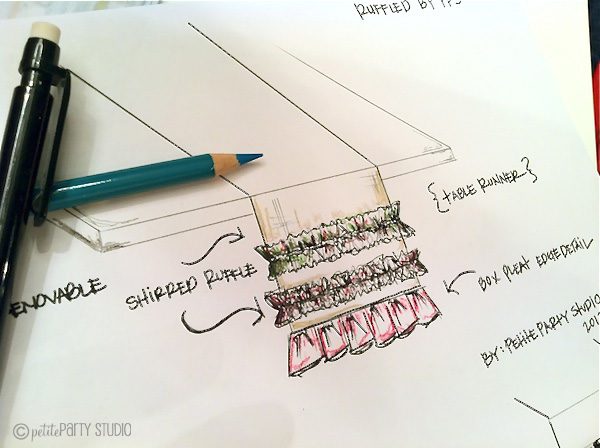 RUFFLED BY
{TABLE RUNNER}
ENOVABLE
SHIRRED RUFFLE
BOX PLEAT EDGE DETAIL
BY: PETITE PARTY STUDIO
© petitePARTY STUDIO